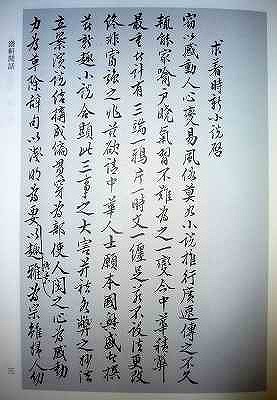 求著時新小說啟
竊以感動人心變易風俗莫如小說推行廣速傳之不久
輒能家喻戶曉氣習不難為之一變今中華積弊
最重大計有三端一鴉片一時文一纏足若不設法更改
終非富強之兆茲欲請中華人士願本國興盛者撰
著新趣小說合顯此三事之大害并祛各弊之妙法
立案演說結構成編貫穿為部使人閱之心為感動
力為革除辭句以淺明為要語意以趣雅為宗雖婦人幼
軒閒話